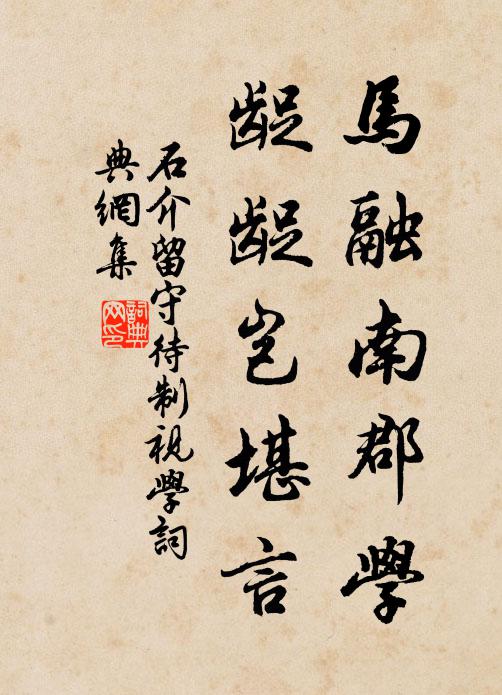 馬融南郡學
齪齪豈堪言
石介留守待制視學詞
典網集
詞典网印